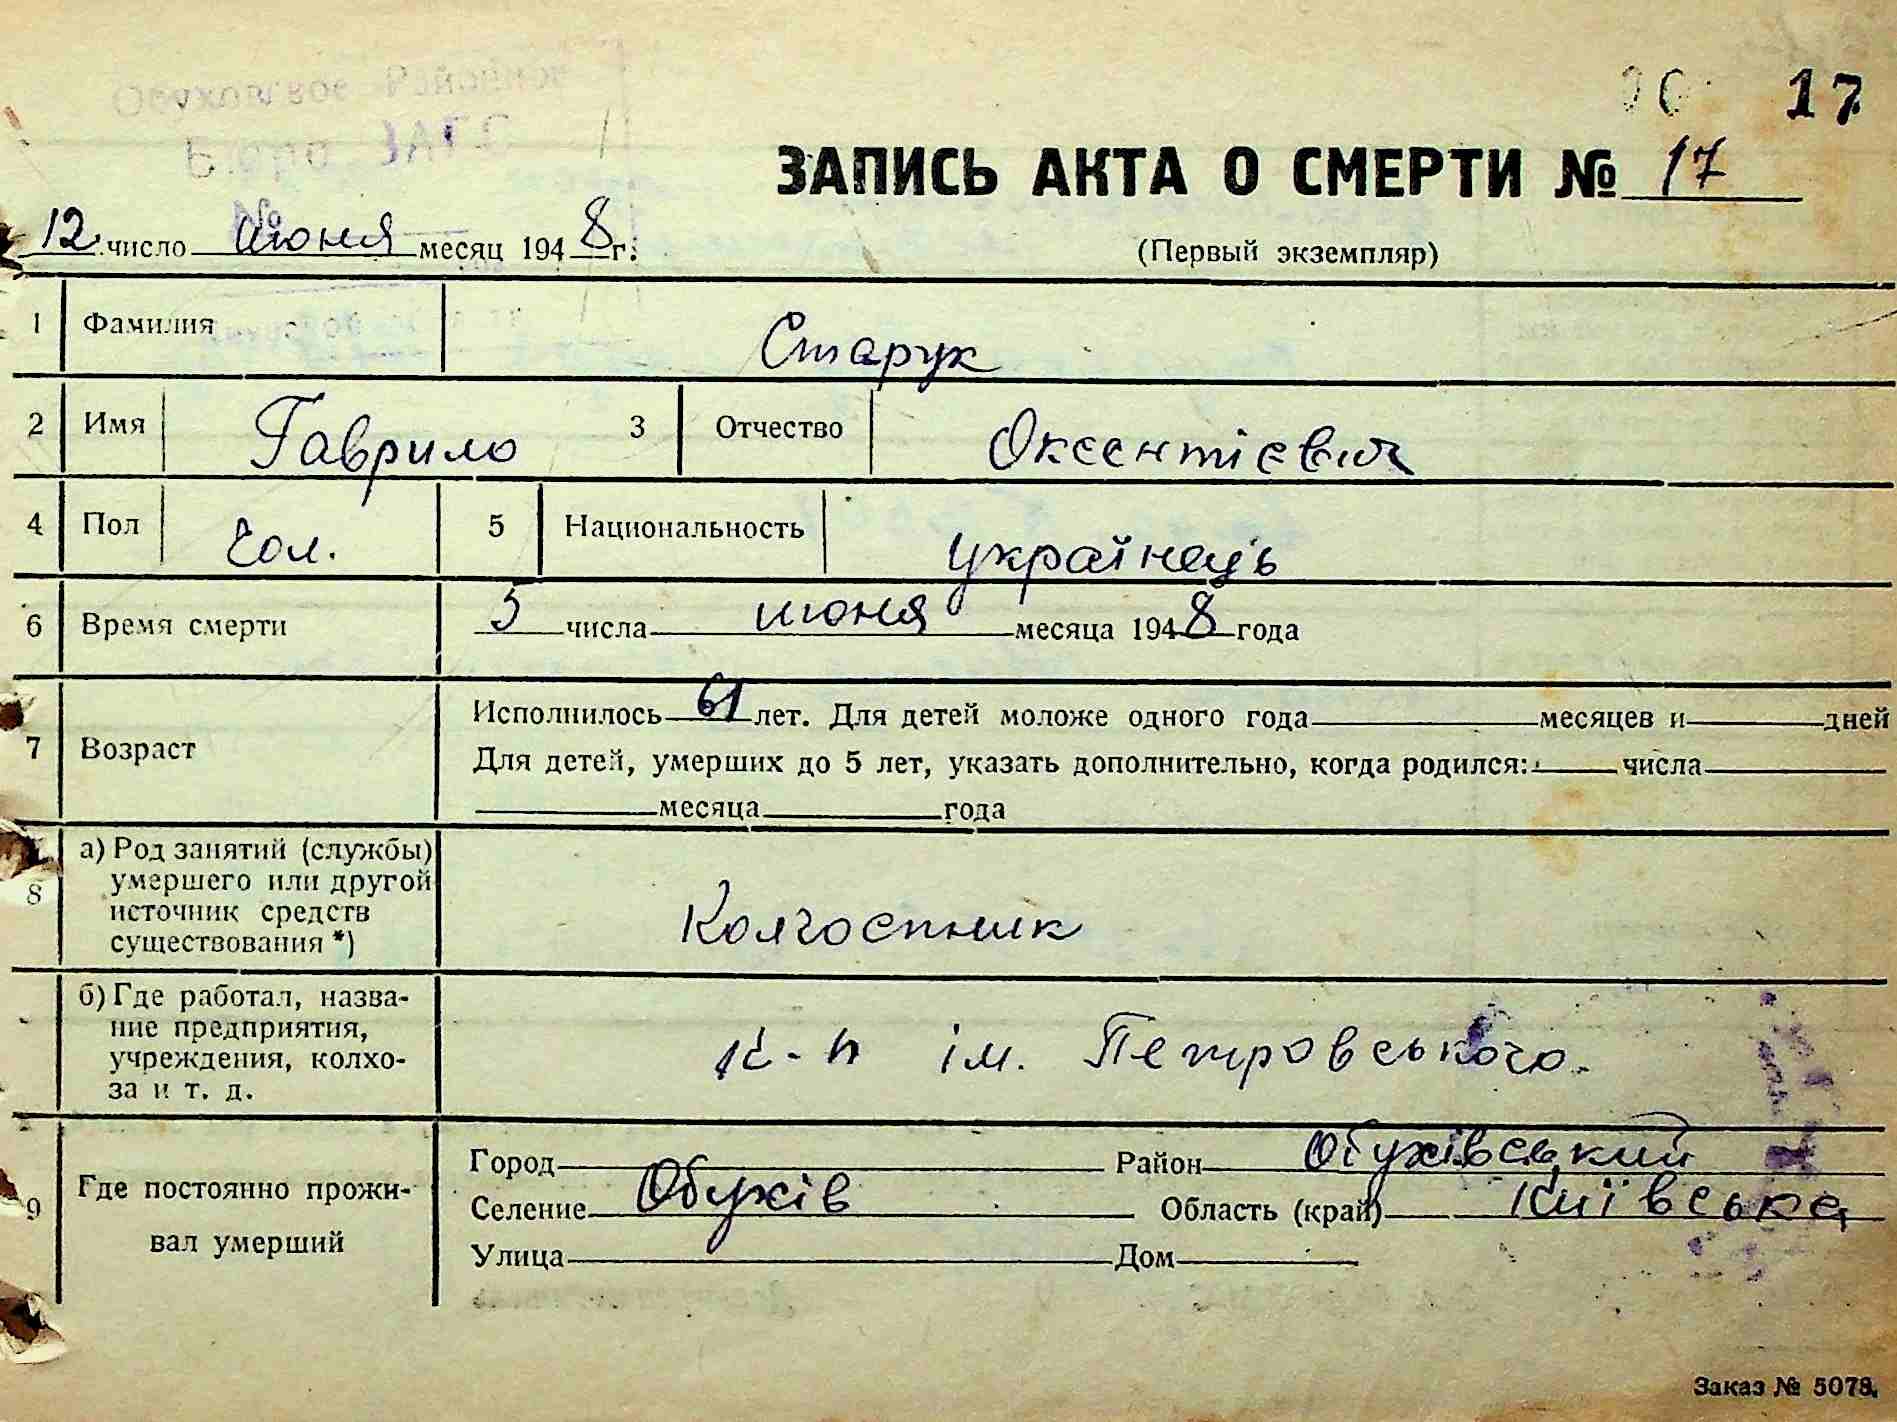 Обуховское Районное
Бюро ЗАГС
№
17
ЗАПИСЬ АКТА О СМЕРТИ № 17
12 число июня месяц 1948 г.
(Первый экземпляр)
1 Фамилия Старук
2 Имя Гаврило 3 Отчество Оксентієвич
4 Пол чол. 5 Национальность українець
6 Время смерти 5 числа июня месяца 1948 года
7 Возраст
Исполнилось 61 лет. Для детей моложе одного года месяцев и дней
Для детей, умерших до 5 лет, указать дополнительно, когда родился: числа
месяца года
8 а) Род занятий (службы)
умершего или другой
источник средств
существования *)
Колгоспник
б) Где работал, назва-
ние предприятия,
учреждения, колхо-
за и т. д.
к-п ім. Петровського.
9 Где постоянно прожи-
вал умерший
Город Район Обухівський
Селение Обухів Область (край) Київська
Улица Дом
Заказ № 5078.